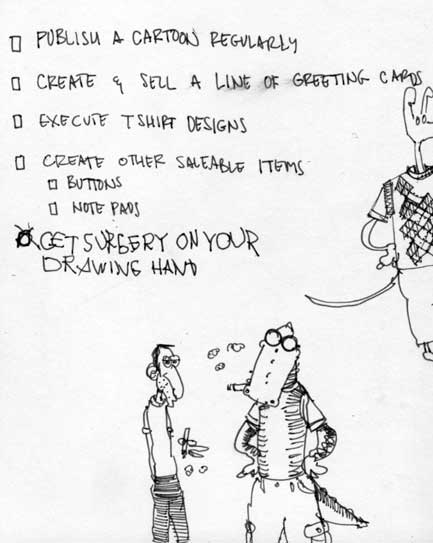 PUBLISH A CARTOON REGULARLY
CREATE & SELL A LINE OF GREETING CARDS
EXECUTE TSHIRT DESIGNS
CREATE OTHER SALEABLE ITEMS
BUTTONS
NOTE PADS
GET SURGERY ON YOUR
DRAWING HAND